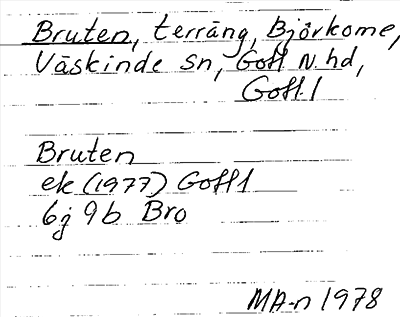 Bruten, terräng, Björkome,
Väskinde sn, Gotl N. hd,
Gotl. l
Bruten
ek (1977) Gotl 1
6j 9b Bro
MA-n 1978